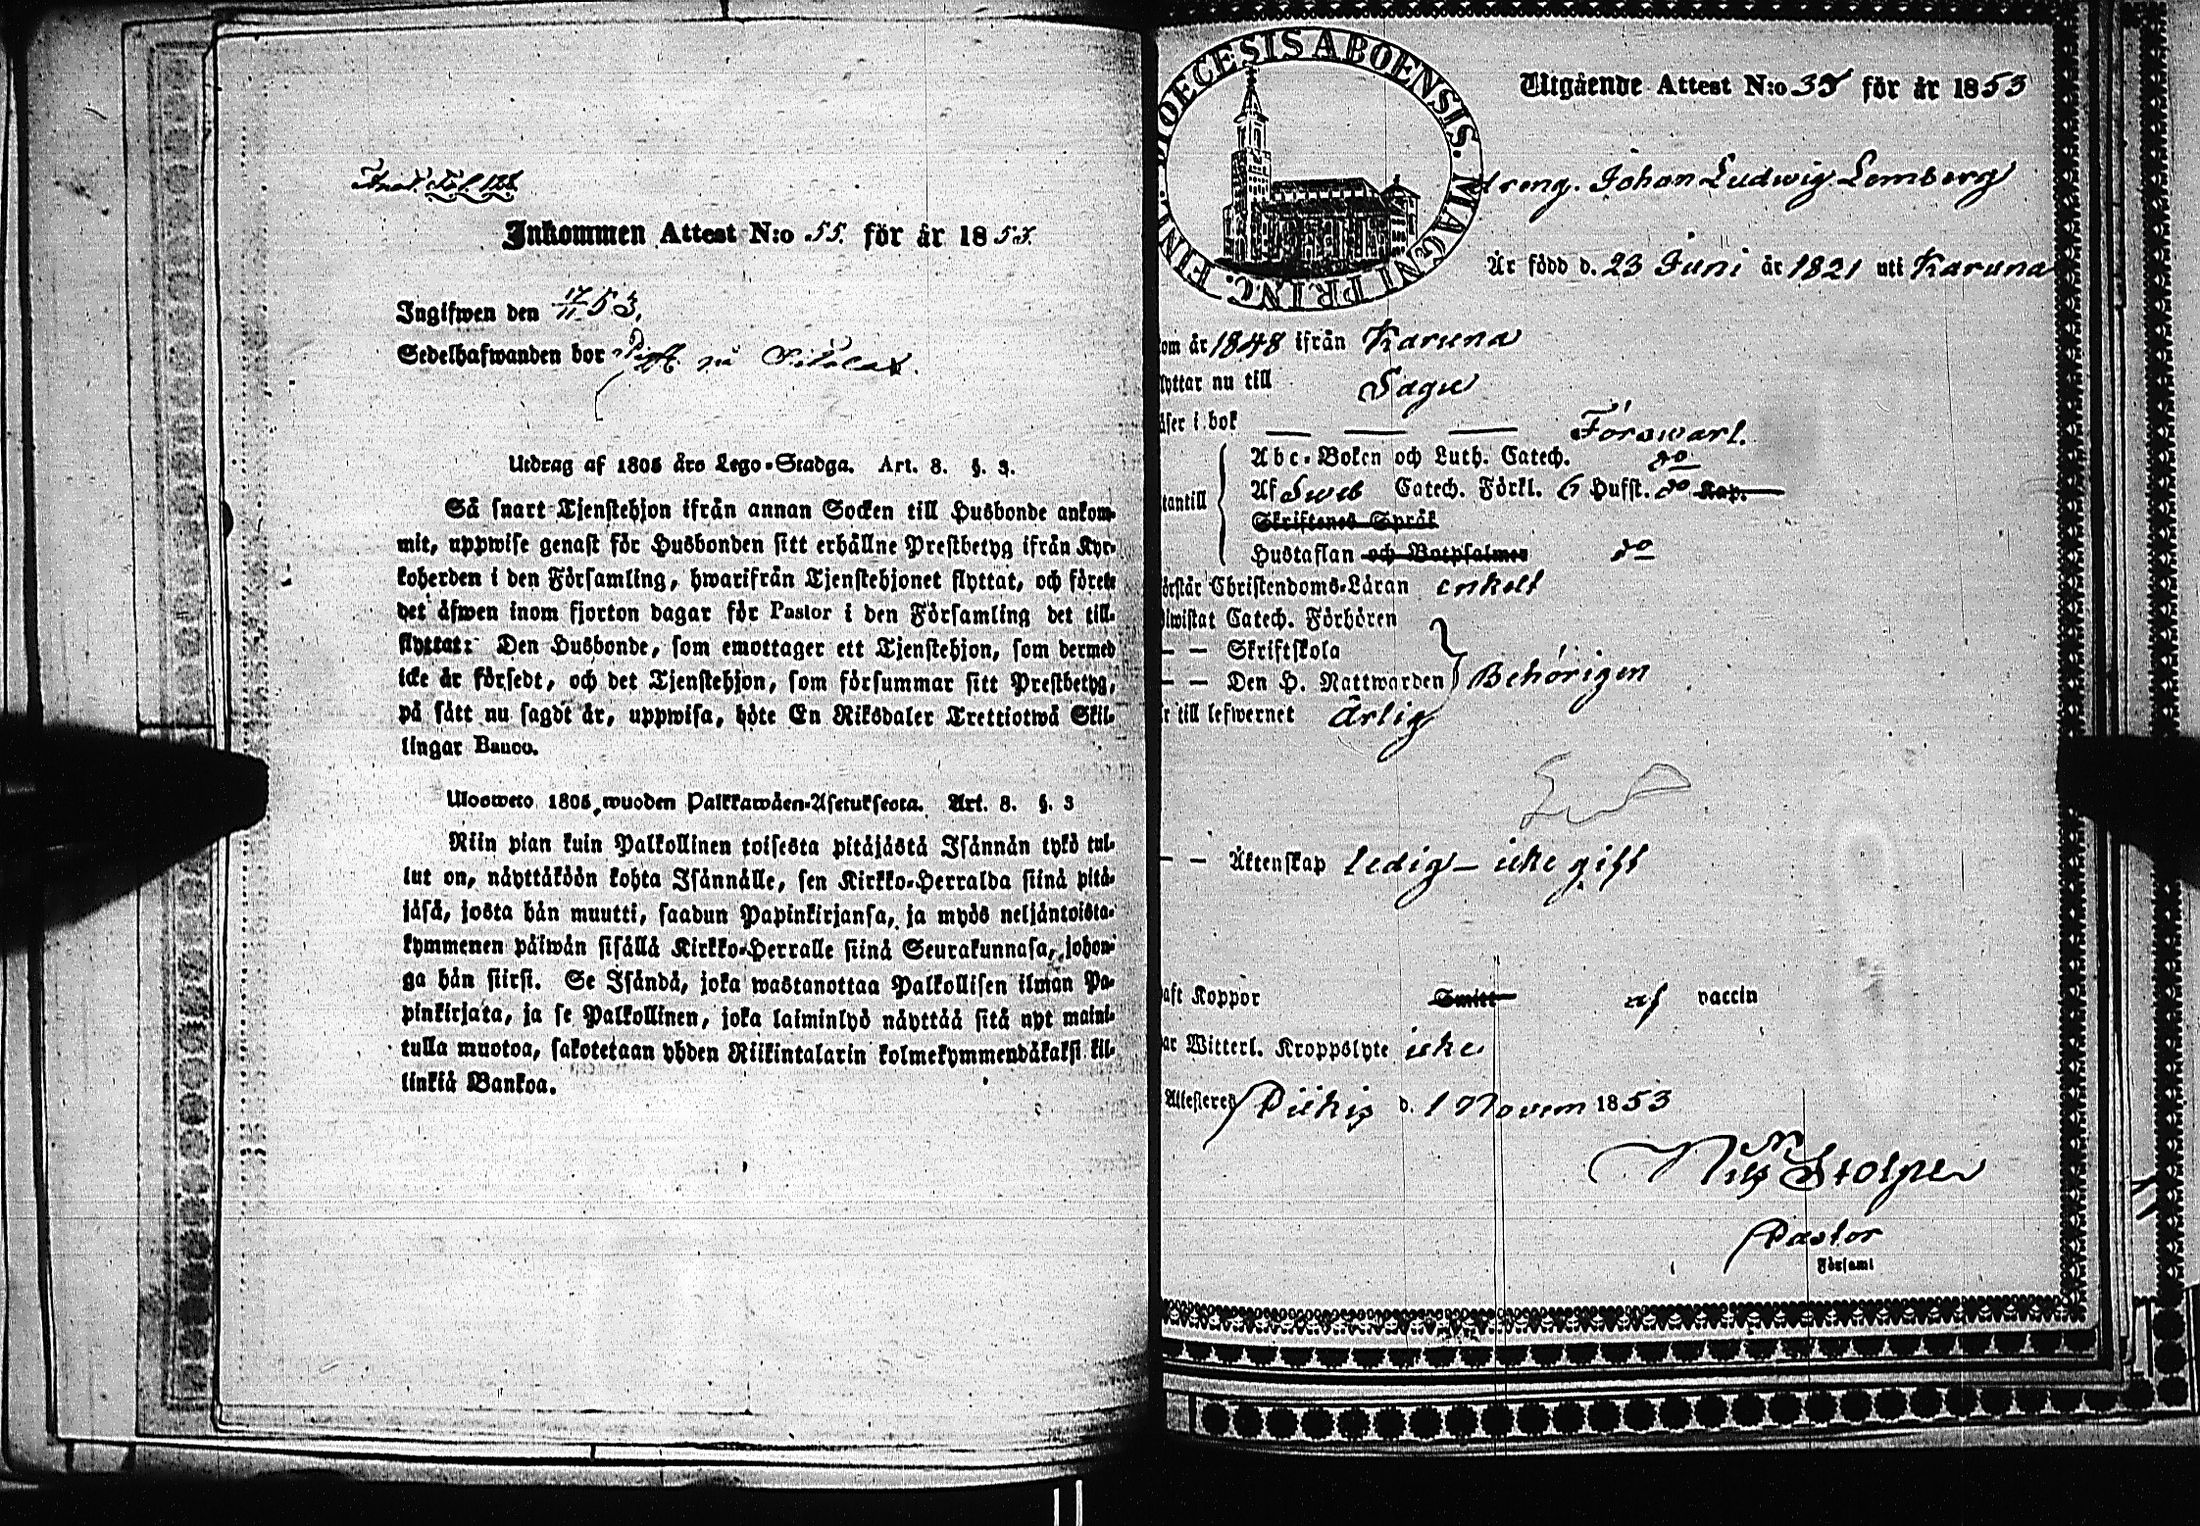 Inkommen Attest N:o 55. för år 1853.
Ingifwen den 17/11 53.
Sedelhafwanden bor på
Utdrag af 1805 års Lego-Stadga. Art. 8. §. 3.
Så snart Tjenstehjon ifrån annan Socken till Husbonde ankom-
mit, uppwise genast för Husbonden sitt erhållne Prestbetyg ifrån Kyr-
koherden i den Församling, hwarifrån Tjenstehjonet flyttat, och förete
det äfwen inom fjorton dagar för Pastor i den Församling det till-
flyttat: Den Husbonde, som emottager ett Tjenstehjon, som dermed
icke är försedt, och det Tjenstehjon, som försummar sitt Prestbetyg,
på sätt nu sagdt är, uppwisa, böte En Riksdaler Trettiotwå Skil-
lingar Banco.
Ulosweto 1805 wuoden Palkkawäen-Asetuksesta. Art. 8. §. 3
Niin pian kuin Palkollinen toisesta pitäjästä Isännän tykö tul-
lut on, näyttäköön kohta Isännälle, sen Kirkko-Herralda siinä pitä-
jäsä, josta hän muutti, saadun Papinkirjansa, ja myös neljäntoista-
kymmenen päiwän sisällä Kirkko-Herralle siinä Seurakunnasa, johon-
ga hän siirsi. Se Isändä, joka wastanottaa Palkollisen ilman Pa-
pinkirjata, ja se Palkollinen, joka laiminlyö näyttää sitä nyt maini-
tulla muotoa, sakotetaan yhden Riikintalarin kolmekymmendäkaksi kil-
linkiä Bankoa.
DIOECESIS ABOENSIS. MAGNI PRINC. FINL.
Utgående Attest N:o 35 för år 1853
dreng. Johan Ludwig Lemberg
Är född d. 23 Juni år 1821 uti Karuna
om år 1848 ifrån Karuna
lyttar nu till Sagu
äser i bok Förswarl.
Abc-Boken och Luth. Catech. do
tantill Af Sweb Catech. Förkl. 6 Hufst. do Kap.
Skriftenes Språk
Hustaflan och Botpsalmer do
örstår Christendoms-Läran enkelt
iwistat Catech. Förhören
— — Skriftskola
— — Den H. Nattwarden Behörigen
r till lefwernet Ärlig
— — Äktenskap ledig – icke gift
aft Koppor Smitt af vaccin
ar Witterl. Kroppslyte icke
Attesteres Piikis d. 1 Novem 1853
Nils Stolpe
Pastor
Församl